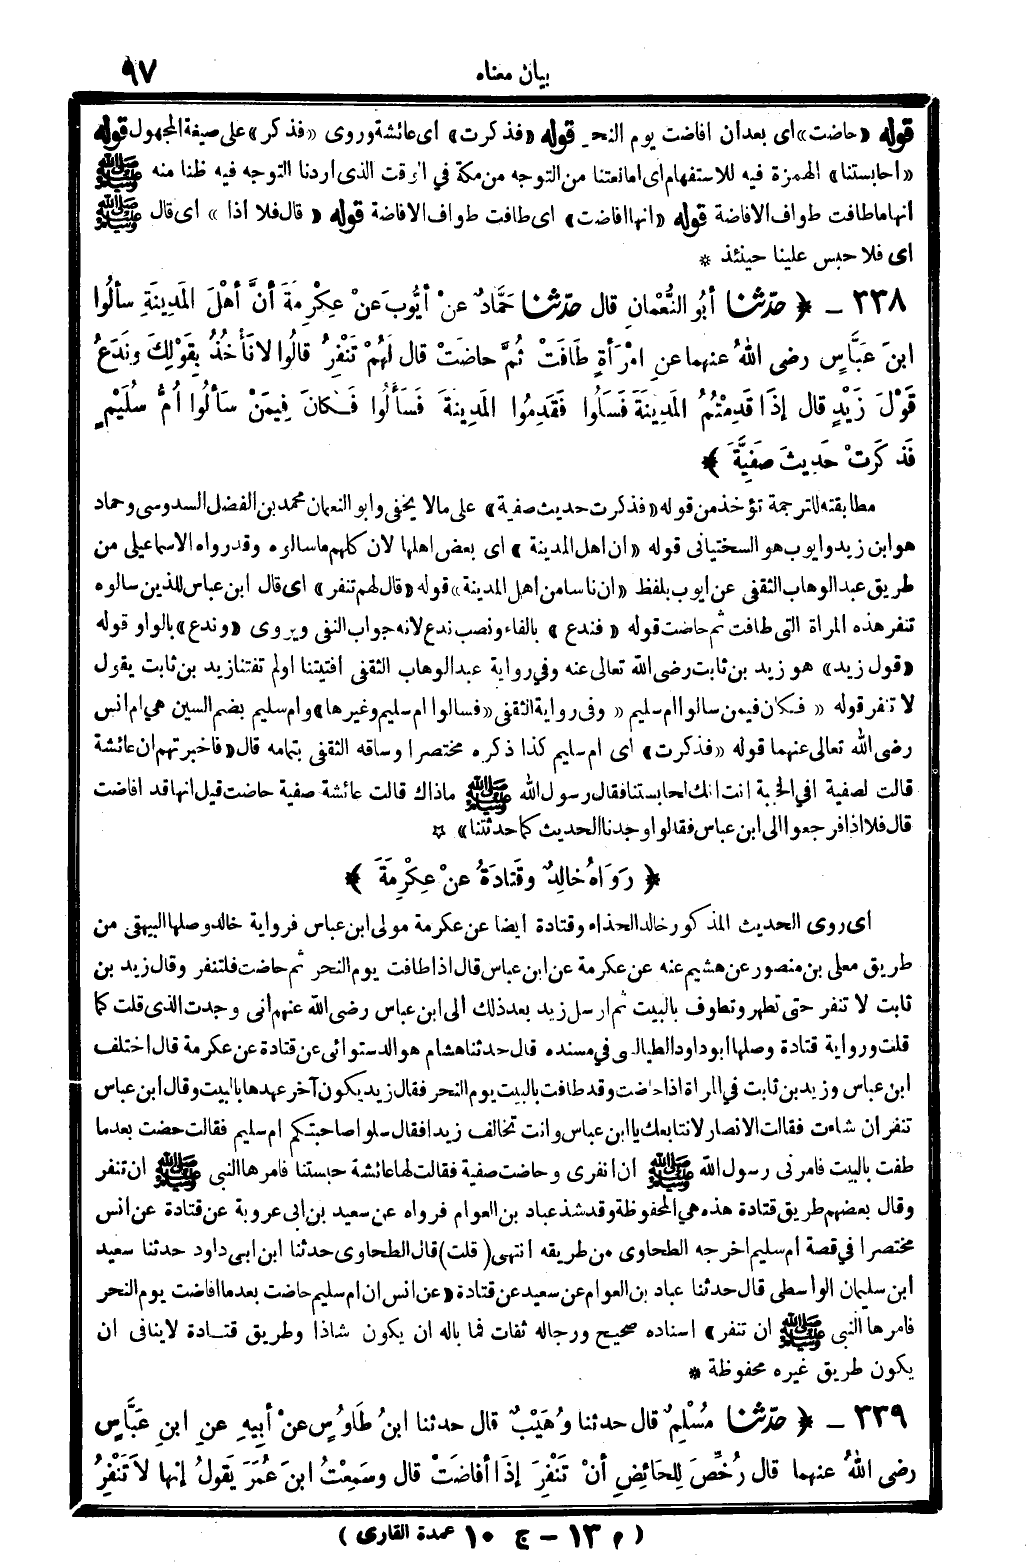 بيان معناه ٩٧
قوله «حاضت» اى بعد ان افاضت يوم النحر قوله «فذكرت» اى عائشة وروى «فذكر» على صيغة المجهول قوله
«احابستنا» الهمزة فيه للاستفهام اى امانعتنا من التوجه من مكة في الوقت الذى اردنا التوجه فيه ظنا منه ﷺ
انها ما طافت طواف الافاضة قوله «انها افاضت» اى طافت طواف الافاضة قوله «قال فلا اذا» اى قال ﷺ
اى فلا حبس علينا حينئذ *
٣٣٨ - ﴿ حدّثنا أبُو النُّعْمانِ قال حدّثنا حَمَّادٌ عنْ أيُّوبَ عنْ عِكْرِمَةَ أنَّ أهْلَ المَدِينَةِ سألُوا
ابنَ عَبَّاسٍ رضى اللهُ عنهما عنِ امْرَأةٍ طَافَتْ ثُمَّ حاضَتْ قال لَهُمْ تَنْفِرُ قالُوا لا نَأْخُذُ بِقَوْلِكَ ونَدَعُ
قَوْلَ زَيْدٍ قال إذَا قَدِمْتُمُ المَدِينَةَ فَسَلُوا فَقَدِمُوا المَدِينَةَ فَسَأَلُوا فَكانَ فِيمَنْ سَألُوا أُمُّ سُلَيْمٍ
فَذَكَرَتْ حَدِيثَ صَفِيَّةَ ﴾
مطابقته للترجمة تؤخذ من قوله «فذكرت حديث صفية» على مالا يخفى وابو النعمان محمد بن الفضل السدوسى وحماد
هو ابن زيد وايوب هو السختيانى قوله «ان اهل المدينة» اى بعض اهلها لان كلهم ما سالوه وقد رواه الاسماعيلى من
طريق عبد الوهاب الثقفى عن ايوب بلفظ «ان ناسا من اهل المدينة» قوله «قال لهم تنفر» اى قال ابن عباس للذين سالوه
تنفر هذه المراة التى طافت ثم حاضت قوله «فندع» بالفاء ونصب ندع لانه جواب النفى ويروى «وندع» بالواو قوله
«قول زيد» هو زيد بن ثابت رضى الله تعالى عنه وفي رواية عبد الوهاب الثقفى افتيتنا اولم تفتنا زيد بن ثابت يقول
لا تنفر قوله «فكان فيمن سالوا ام سليم» وفى رواية الثقفى «فسالوا ام سليم وغيرها» وام سليم بضم السين هي ام انس
رضى الله تعالى عنهما قوله «فذكرت» اى ام سليم كذا ذكره مختصرا وساقه الثقفى بتمامه قال «فاخبرتهم ان عائشة
قالت لصفية افي الخيبة انت انك لحابستنا فقال رسول الله ﷺ ماذاك قالت عائشة صفية حاضت قيل انها قد افاضت
قال فلا اذا فرجعوا الى ابن عباس فقالوا وجدنا الحديث كما حدثتنا» *
﴿ رَوَاهُ خالِدٌ وقَتَادَةُ عنْ عِكْرِمَةَ ﴾
اى روى الحديث المذكور خالد الحذاء وقتادة ايضا عن عكرمة مولى ابن عباس فرواية خالد وصلها البيهقى من
طريق معلى بن منصور عن هشيم عنه عن عكرمة عن ابن عباس قال اذا طافت يوم النحر ثم حاضت فلتنفر وقال زيد بن
ثابت لا تنفر حتى تطهر وتطوف بالبيت ثم ارسل زيد بعد ذلك الى ابن عباس رضى الله عنهم انى وجدت الذى قلت كما
قلت ورواية قتادة وصلها ابو داود الطيالسى في مسنده قال حدثنا هشام هو الدستوائى عن قتادة عن عكرمة قال اختلف
ابن عباس وزيد بن ثابت في المراة اذا حاضت وقد طافت بالبيت يوم النحر فقال زيد يكون آخر عهدها بالبيت وقال ابن عباس
تنفر ان شاءت فقالت الانصار لا نتابعك يا ابن عباس وانت تخالف زيدا فقال سلوا صاحبتكم ام سليم فقالت حضت بعدما
طفت بالبيت فامرنى رسول الله ﷺ ان انفرى وحاضت صفية فقالت لها عائشة حبستنا فامرها النبى ﷺ ان تنفر
وقال بعضهم طريق قتادة هذه هي المحفوظة وقد شذ عباد بن العوام فرواه عن سعيد بن ابى عروبة عن قتادة عن انس
مختصرا في قصة ام سليم اخرجه الطحاوى من طريقه انتهى (قلت) قال الطحاوى حدثنا ابن ابى داود حدثنا سعيد
ابن سليمان الواسطى قال حدثنا عباد بن العوام عن سعيد عن قتادة «عن انس ان ام سليم حاضت بعدما افاضت يوم النحر
فامرها النبى ﷺ ان تنفر» اسناده صحيح ورجاله ثقات فما باله ان يكون شاذا وطريق قتادة لا ينافى ان
يكون طريق غيره محفوظة *
٣٣٩ - ﴿ حدّثنا مُسْلِمٌ قال حدثنا وُهَيْبٌ قال حدثنا ابنُ طَاوُسٍ عنْ أبِيهِ عنِ ابنِ عَبَّاسٍ
رضى اللهُ عنهما قال رُخِّصَ لِلحَائِضِ أنْ تَنْفِرَ إذَا أفاضَتْ قال وسَمِعْتُ ابنَ عُمَرَ يَقُولُ إنها لاَ تَنْفِرُ
(م ١٣ - ج ١٠ عمدة القارى)